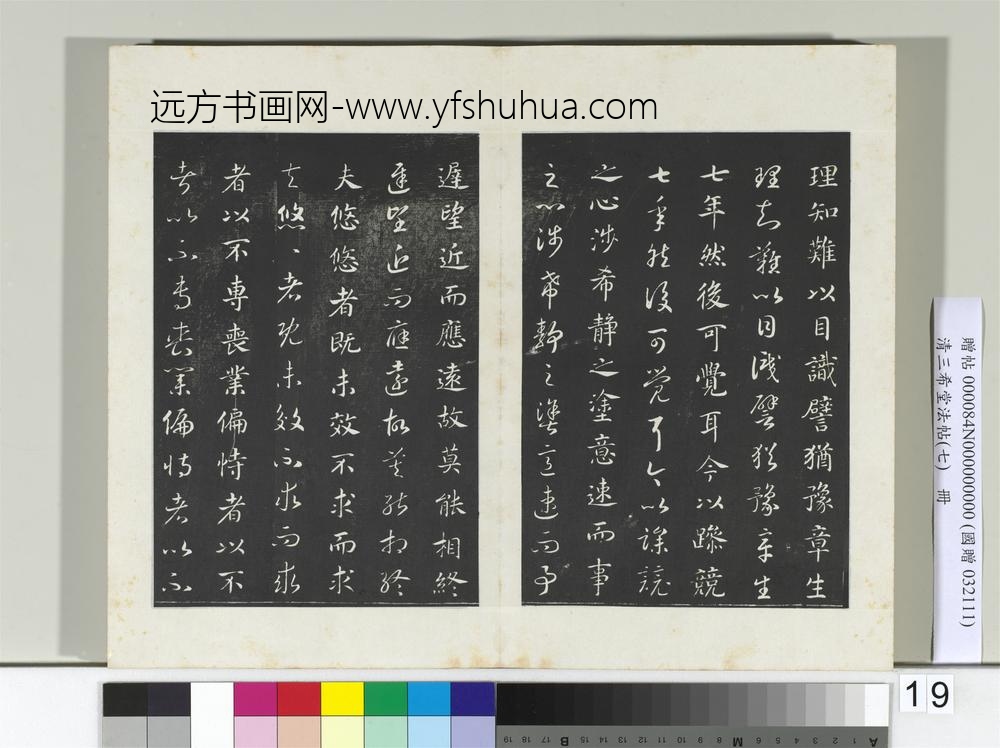 远方书画网-www.yfshuhua.com
理知難以目識譬猶豫章生
理知難以目識譬猶豫章生
七年然後可覺耳今以躁競
七年然後可覺耳今以躁競
之心涉希静之塗意速而事
之心涉希静之塗意速而事
遲望近而應遠故莫能相終
遲望近而應遠故莫能相終
夫悠悠者既未效不求而求
夫悠〻者既未效不求而求
者以不專喪業偏恃者以不
者以不專喪業偏恃者以不
贈帖 000084N000000000 (國贈 032111)
清三希堂法帖(七) 冊
19
A 1 2 3 4 5 6 M 8 9 10 11 12 13 14 15 B 17 18 19